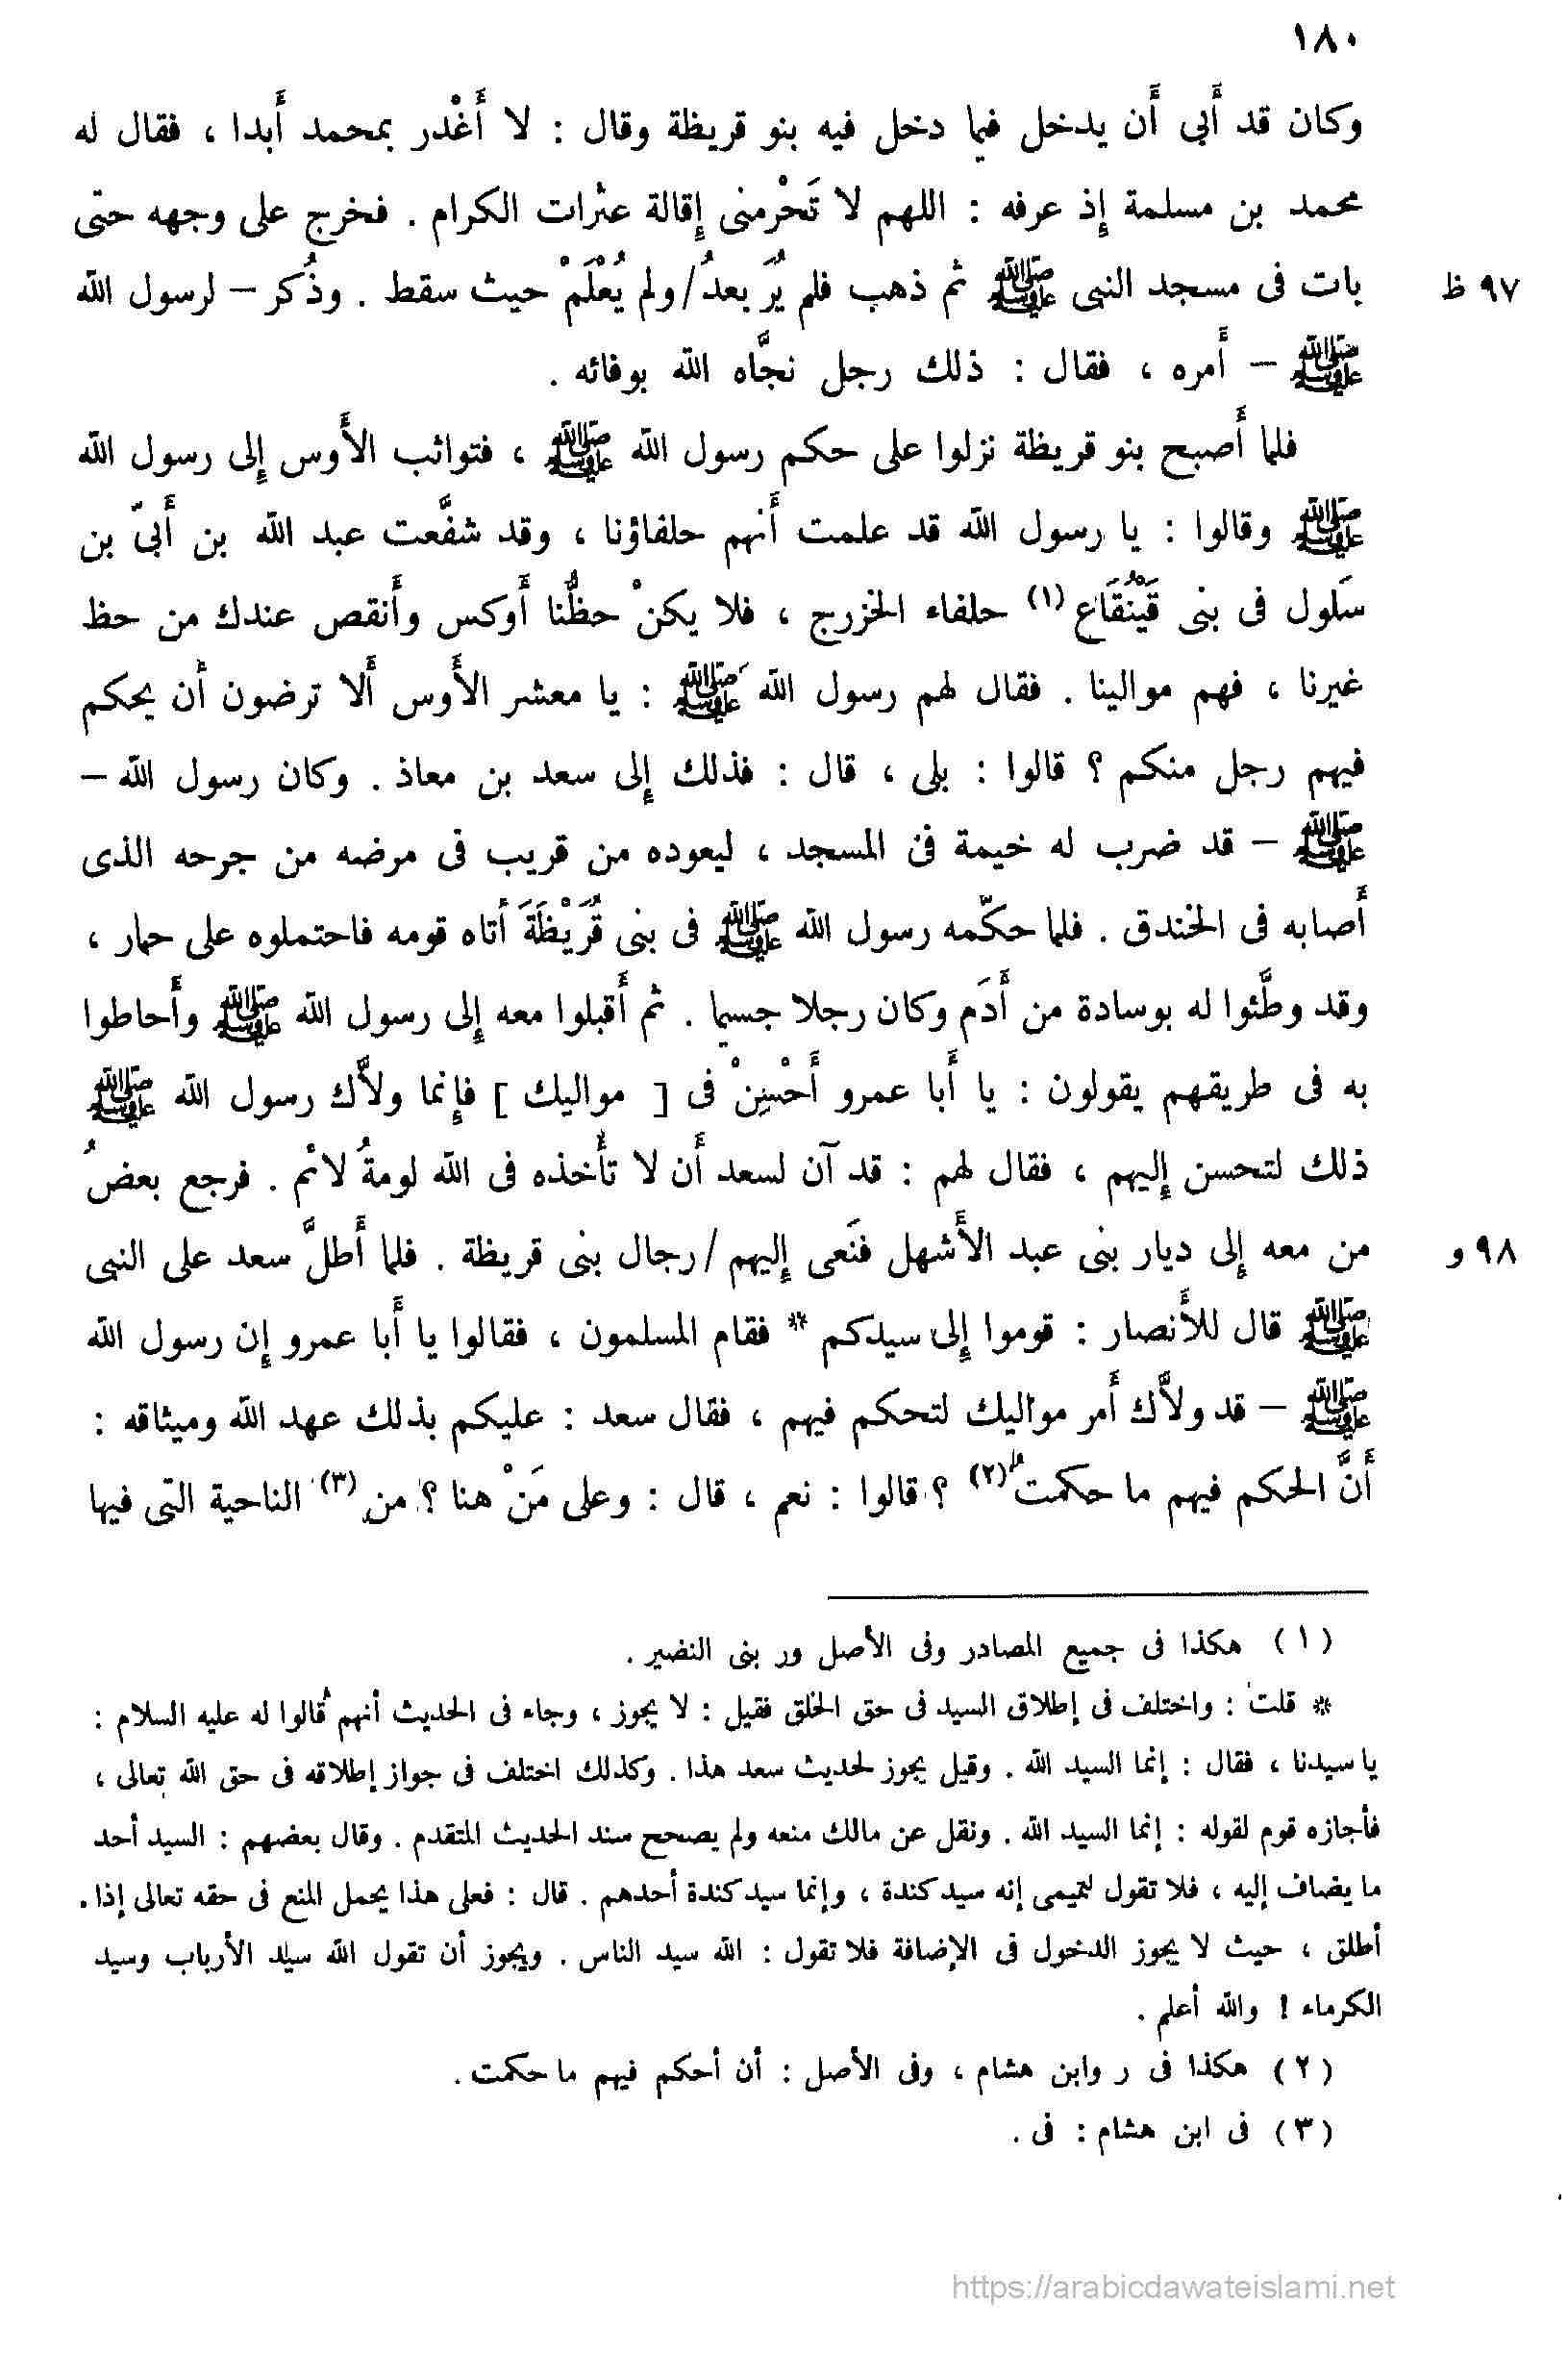 ١٨٠
وكان قد أَبى أَن يدخل فيما دخل فيه بنو قريظة وقال : لا أَغْدر بمحمد أَبدا ، فقال له
محمد بن مسلمة إِذ عرفه : اللهم لا تَحْرمنى إِقالة عثرات الكرام . فخرج على وجهه حتى
بات فى مسجد النبى ﷺ ثم ذهب فلم يُرَ بعدُ/ولم يُعْلَمْ حيث سقط . وذُكر – لرسول الله
٩٧ ظ
ﷺ – أَمره ، فقال : ذلك رجل نجَّاه الله بوفائه .
فلما أَصبح بنو قريظة نزلوا على حكم رسول الله ﷺ ، فتواثب الأَوس إِلى رسول الله
ﷺ وقالوا : يا رسول الله قد علمت أَنهم حلفاؤنا ، وقد شفَّعت عبد الله بن أَبىّ بن
سَلول فى بنى قَيْنُقَاع (١) حلفاء الخزرج ، فلا يكنْ حظُّنا أَوكس وأَنقص عندك من حظ
غيرنا ، فهم موالينا . فقال لهم رسول الله ﷺ : يا معشر الأَوس أَلا ترضون أَن يحكم
فيهم رجل منكم ؟ قالوا : بلى ، قال : فذلك إِلى سعد بن معاذ . وكان رسول الله –
ﷺ – قد ضرب له خيمة فى المسجد ، ليعوده من قريب فى مرضه من جرحه الذى
أَصابه فى الخندق . فلما حكّمه رسول الله ﷺ فى بنى قُرَيْظَةَ أَتاه قومه فاحتملوه على حمار ،
وقد وطَّئوا له بوسادة من أَدَم وكان رجلا جسيما . ثم أَقبلوا معه إِلى رسول الله ﷺ وأَحاطوا
به فى طريقهم يقولون : يا أَبا عمرو أَحْسِنْ فى [ مواليك ] فإِنما ولاَّك رسول الله ﷺ
ذلك لتحسن إِليهم ، فقال لهم : قد آن لسعد أَن لا تأَخذه فى الله لومةُ لائم . فرجع بعضُ
من معه إِلى ديار بنى عبد الأَشهل فنَعى إِليهم /رجال بنى قريظة . فلما أَطلَّ سعد على النبى
٩٨ و
ﷺ قال للأَنصار : قوموا إِلى سيدكم * فقام المسلمون ، فقالوا يا أَبا عمرو إِن رسول الله
ﷺ – قد ولاَّك أَمر مواليك لتحكم فيهم ، فقال سعد : عليكم بذلك عهد الله وميثاقه :
أَنَّ الحكم فيهم ما حكمت (٢) ؟ قالوا : نعم ، قال : وعلى مَنْ هنا ؟ من (٣) الناحية التى فيها
(١) هكذا فى جميع المصادر وفى الأصل ور بنى النضير .
* قلت : واختلف فى إطلاق السيد فى حق الخلق فقيل : لا يجوز ، وجاء فى الحديث أنهم قالوا له عليه السلام :
يا سيدنا ، فقال : إنما السيد الله . وقيل يجوز لحديث سعد هذا . وكذلك اختلف فى جواز إطلاقه فى حق الله تعالى ،
فأجازه قوم لقوله : إنما السيد الله . ونقل عن مالك منعه ولم يصحح سند الحديث المتقدم . وقال بعضهم : السيد أحد
ما يضاف إليه ، فلا تقول لتميمى إنه سيد كندة ، وإنما سيد كندة أحدهم . قال : فعلى هذا يحمل المنع فى حقه تعالى إذا .
أطلق ، حيث لا يجوز الدخول فى الإضافة فلا تقول : الله سيد الناس . ويجوز أن تقول الله سيد الأرباب وسيد
الكرماء ! والله أعلم .
(٢) هكذا فى ر وابن هشام ، وفى الأصل : أن أحكم فيهم ما حكمت .
(٣) فى ابن هشام : فى .
https://arabicdawateislami.net